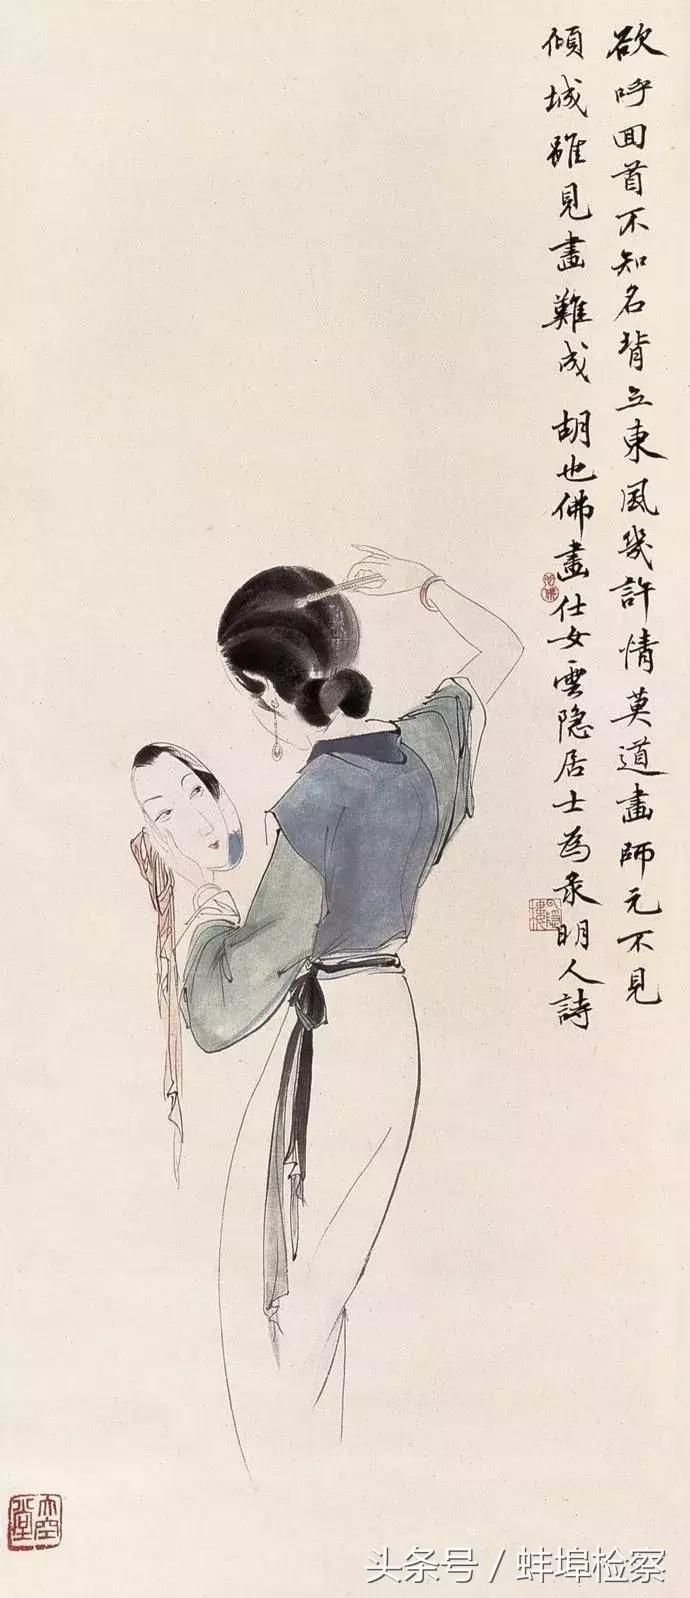 欲呼回首不知名背立東風幾許情莫道畫師元不見
傾城雖見畫難成 胡也佛畫仕女雲隐居士為录明人詩
大空堂
头条号 / 蚌埠检察